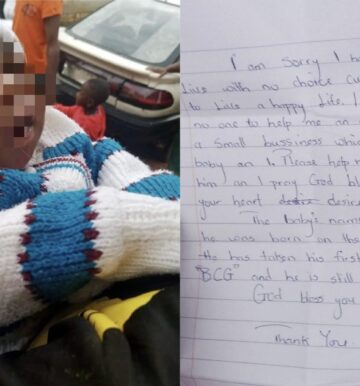 I am sorry I h
live with no choice
to live a happy life. I
no one to help me an
a small bussiness whic
baby an I. Please help
him an I pray God bl
your heart desire
The baby's nam
he was born on the
He has taken his first
"BCG" and he is still
God bless you
Thank You